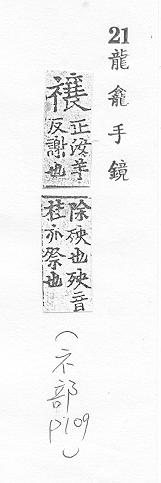 21龍龕手鏡
禳正汝羊反謝也
除殃也殃音
柱亦祭也
(示部
p109)